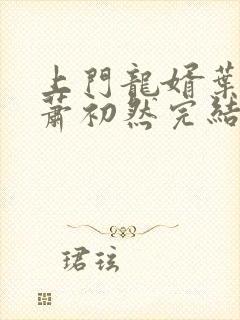 上門龍婿葉
蕭初然完結
珺玹